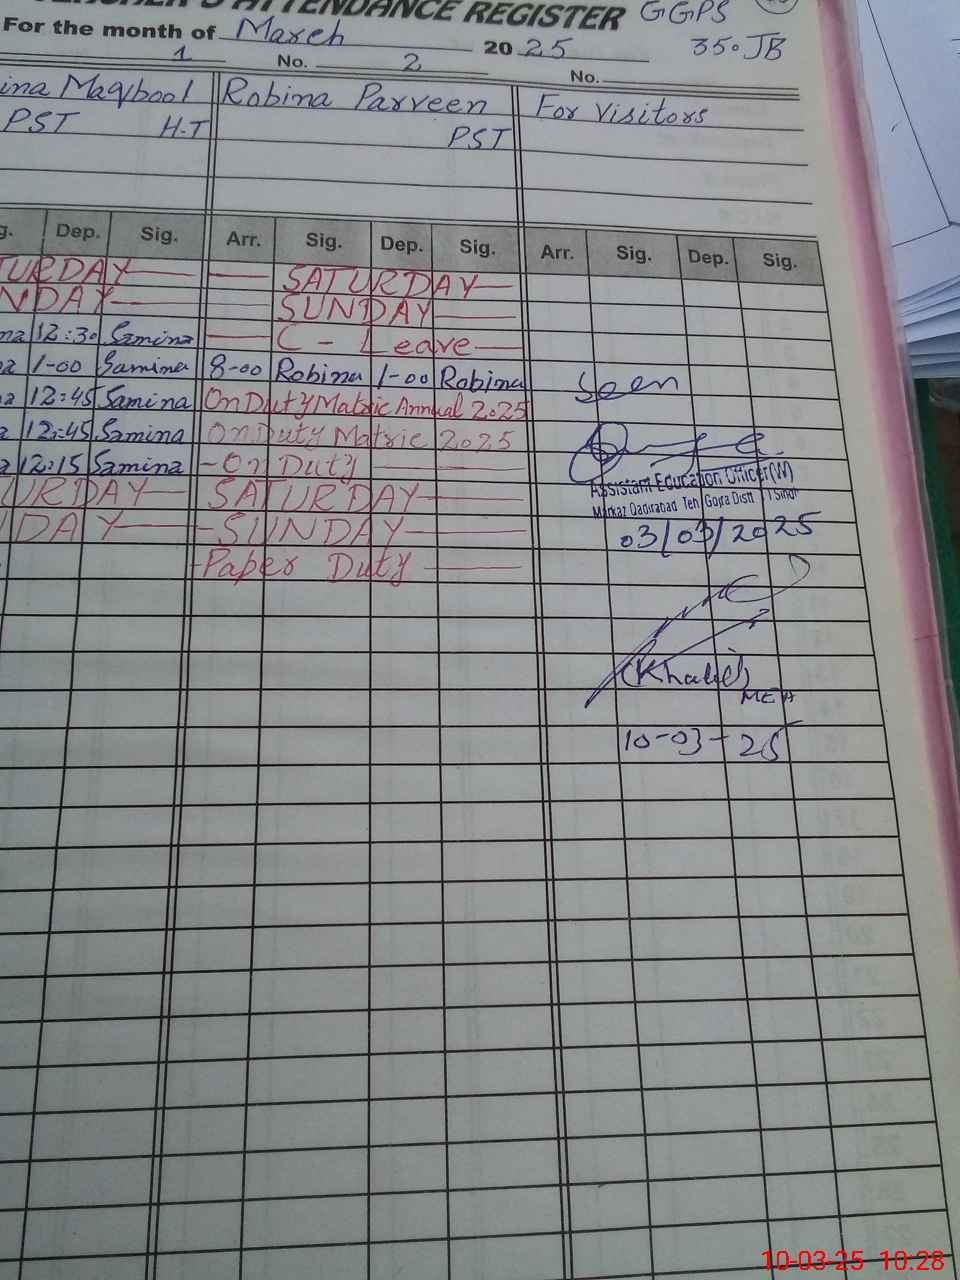 ATTENDANCE REGISTER GGPS
For the month of March 2025 350 JB
1 No. 2 No.
ina Maqbool Robina Parveen For Visitors
PST H-T PST
g. Dep. Sig. Arr. Sig. Dep. Sig. Arr. Sig. Dep. Sig.
TURDAY SATURDAY
NDAY SUNDAY
na 12:30 Samina C - Leave
a 1-00 Samina 8-00 Robina 1-00 Robina Seen
a 12:45 Samina On Duty Matric Annual 2025
a 12:45 Samina On Duty Matric 2025
a 12:15 Samina - On Duty
URDAY SATURDAY
DAY - SUNDAY
Paper Duty
Assistant Education Officer(W)
Markaz Qadirabad Teh Gojra Distt
03/03/2025
(Khalid)
MEA
10-03-25
10-03-25 10:28